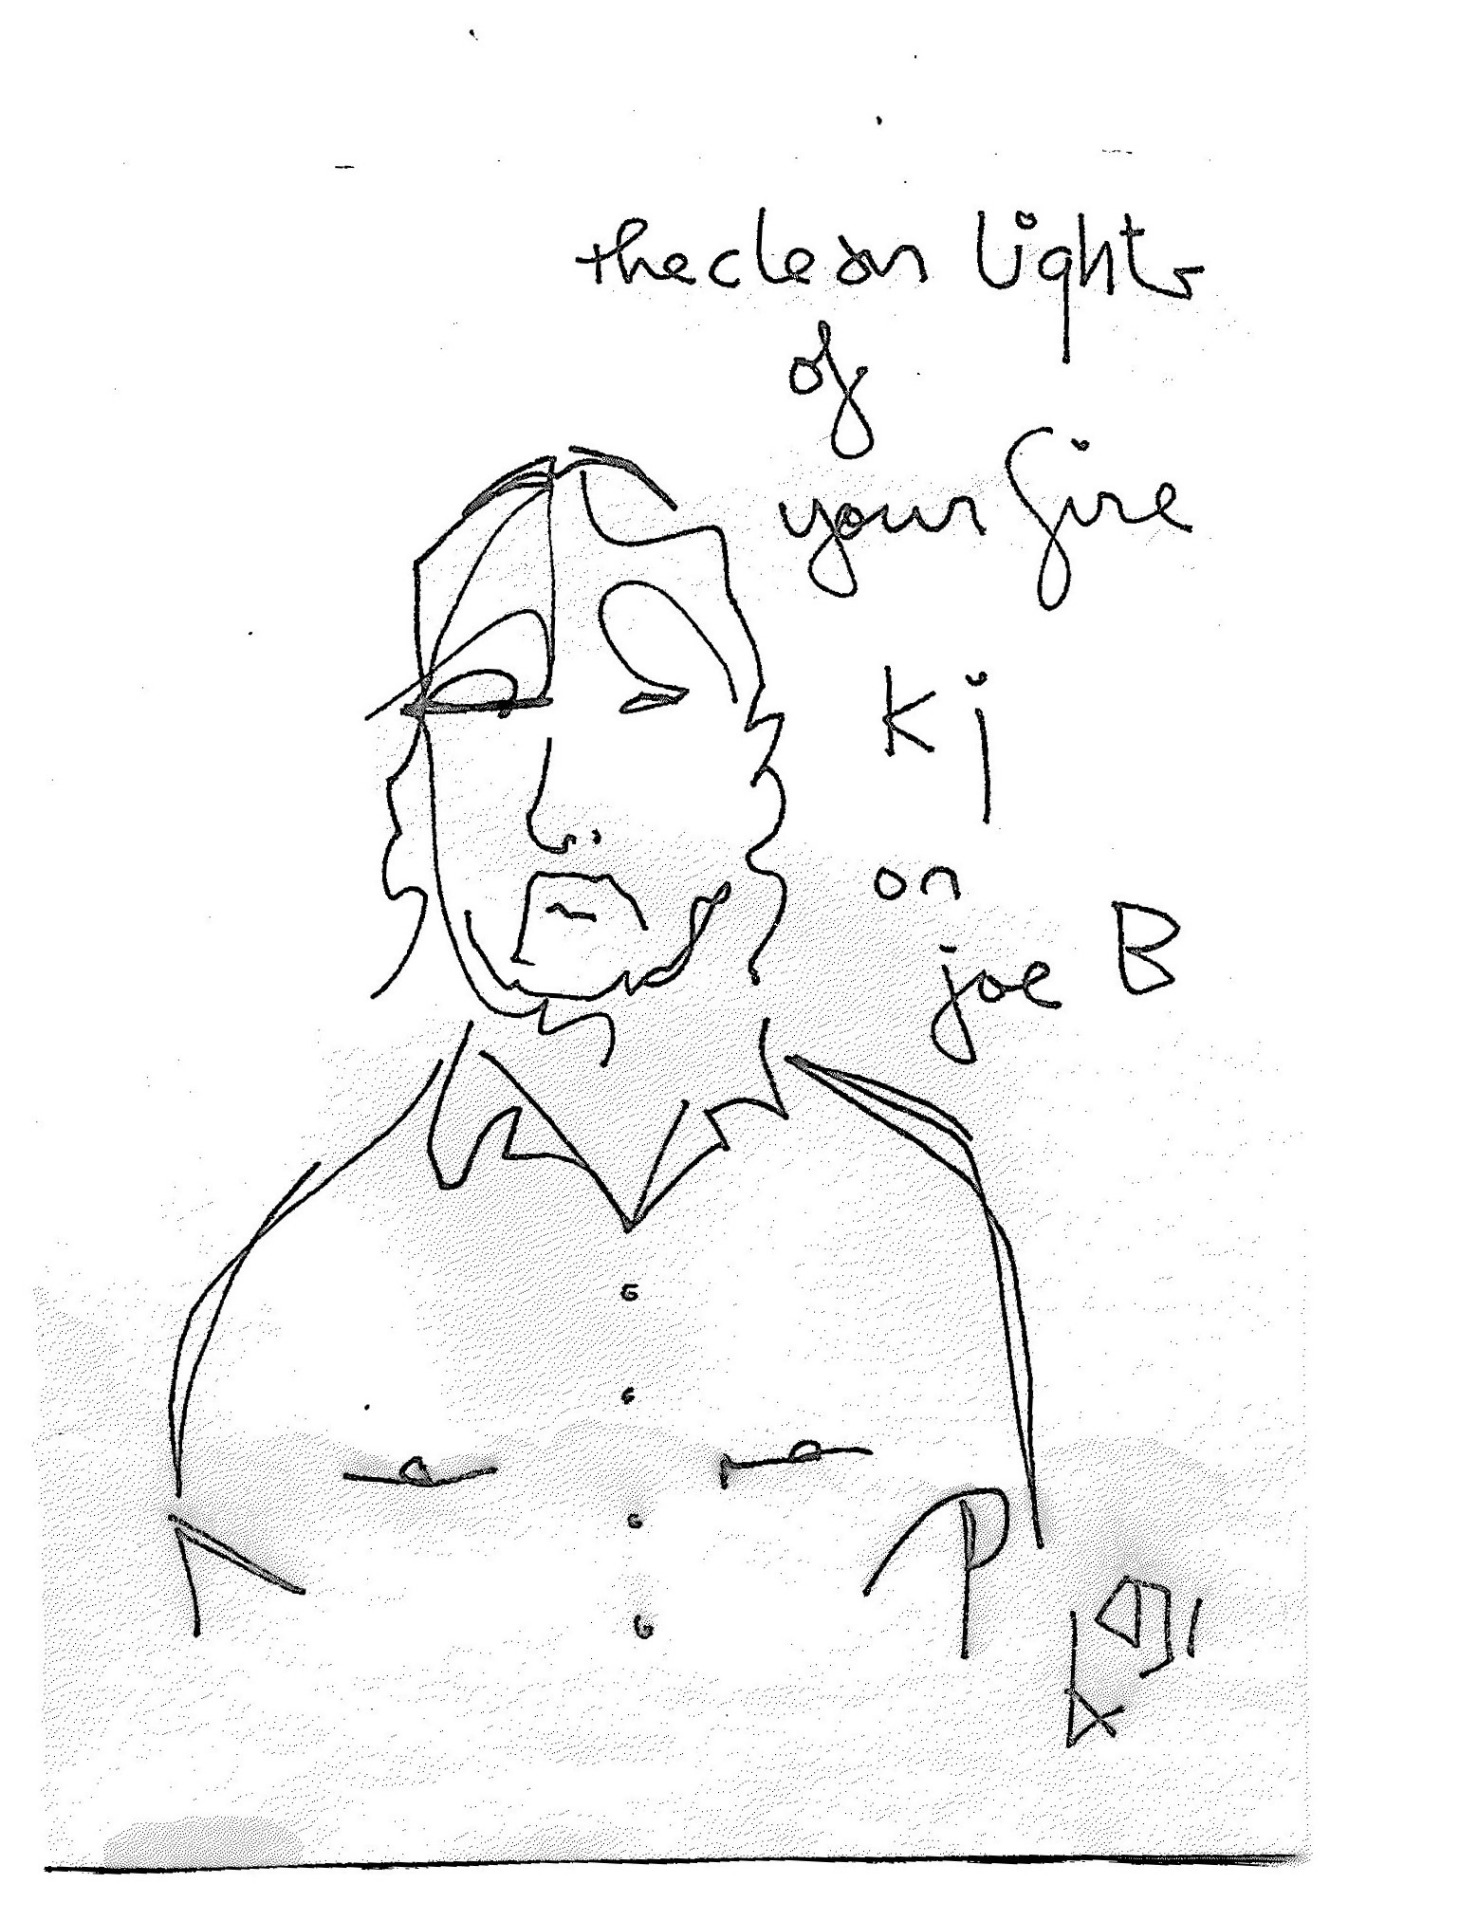 the clean lights
of
your fire
kj
on
joe B